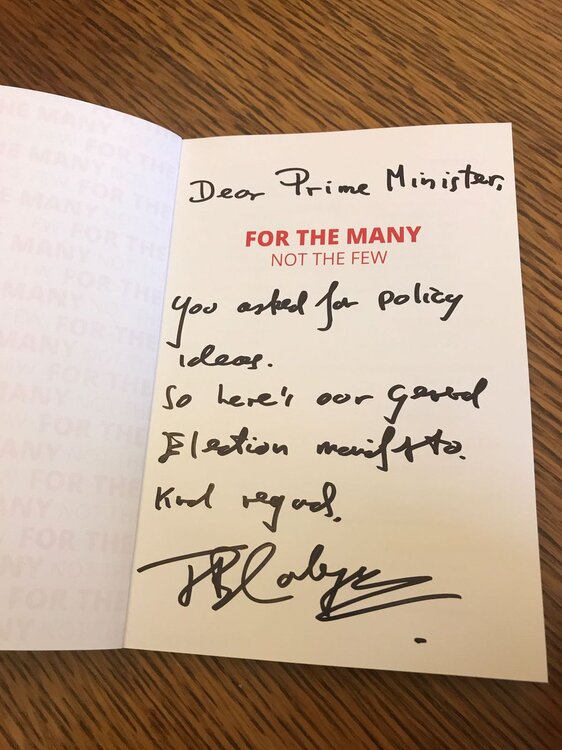 Dear Prime Minister,
FOR THE MANY
NOT THE FEW
You asked for policy
ideas.
So here's our General
Election manifesto.
Kind regards,